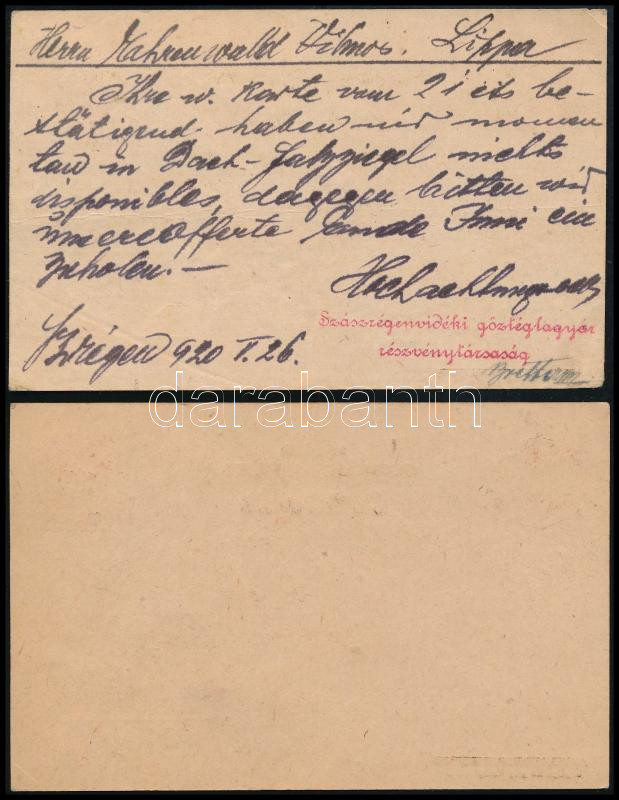 Herrn Fahrenwald Vilmos. Lippa
Ihre w. Karte vom 21 cts be-
stätigend haben wir momen
tan in Dach-Falzziegel nichts
disponibles, dagegen bitten wir
unsere Offerte Ende Juni ein
zuholen. —
Hochachtungsvoll
Szászrégenvidéki gőztéglagyár
részvénytársaság
Szrégen 920 I. 26.
darabanth